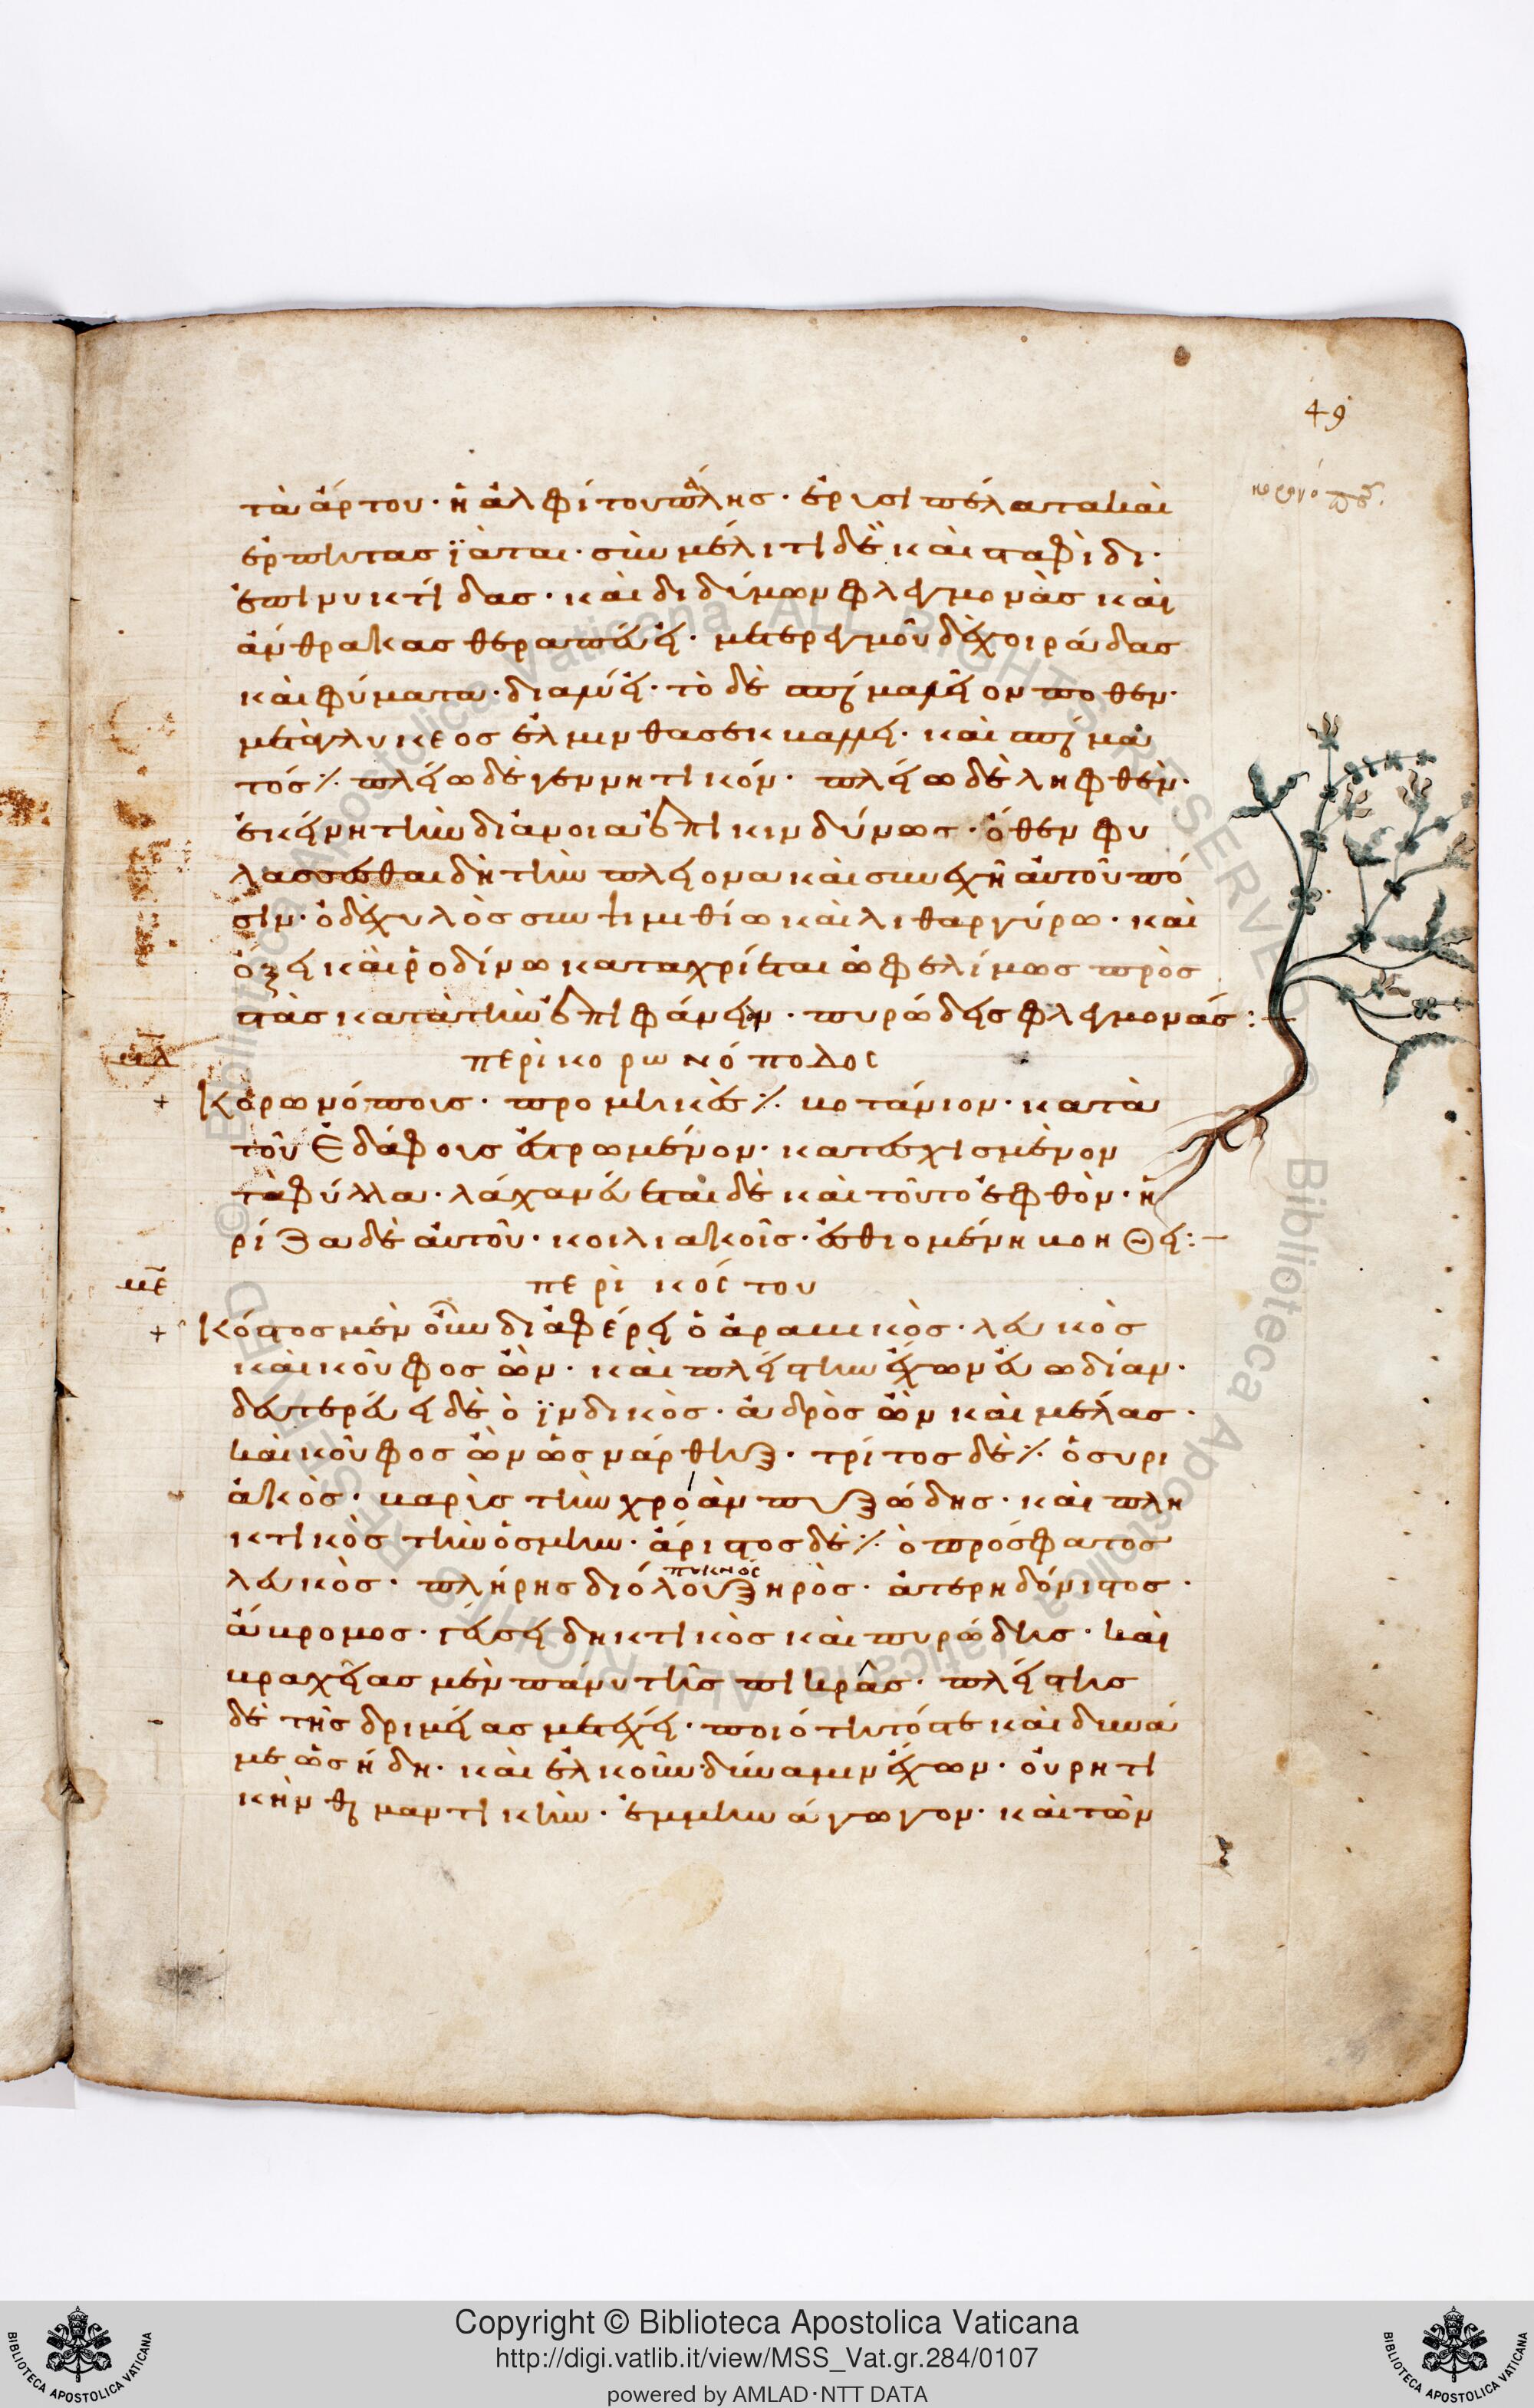 49
τὰ ἄρτου· ἢ ἀλφίτου πάλης· ἐρυσιπέλατα καὶ
ἑρπηντας ϊἀται· σὺν μέλιτι δὲ καὶ σταφίδι·
ἐπινυκτίδας· καὶ διδύμων φλεγμονὰς καὶ
ἄνθρακας θεραπεύει· μετ ἐρεγμοῦ δὲ χοιράδας
καὶ φύματα· διαλύει· τὸ δὲ σπέρμα λεῖον ποθὲν·
μετὰ γλυκέος ἕλμινθας ἐκμάσσει· καὶ σπέρμα
τός ἐστι πλείω δὲ γεννητικόν· πλείω δὲ ληφθὲν·
ἐκείνη τὴν διάνοιαν ἐπικινδύνως· ὅθεν φυ
λάσσεσθαι δὴ τὴν πλείονα καὶ συνεχῆ αὐτοῦ πό
σιν· ὁ δὲ χυλὸς σὺν ψιμιθίω καὶ λιθαργύρω· καὶ
ὄξει καὶ ῥοδίνω καταχρίεται ὠφελίμως πρὸς
τὰς κατὰ τὴν ἐπιφάνειαν· πυρώδεις φλεγμονάς:—
μδ
περὶ κορωνόποδος
Κορωνόπους· προμήκες ἐστι βοτάνιον· κατὰ
τοῦ ἐδάφους ἐστρωμένον· κατεσχισμένον
τὰ φύλλα· λαχανεύεται δὲ καὶ τοῦτο ἑφθὸν· ἡ
ρίζα δὲ αὐτοῦ· κοιλιακοῖς· ἐσθιομένη βοηθεῖ:—
με
περὶ κόστου
Κόστος μὲν οὖν διαφέρει ὁ ἀραβικὸς· λευκὸς
καὶ κοῦφος ὢν· καὶ πλείστην ἔχων εὐωδίαν·
δευτερεύει δὲ ὁ ϊνδικὸς· ἁδρὸς ὢν καὶ μέλας·
καὶ κοῦφος ὢν ὡς νάρθηξ· τρίτος δὲ ἐστι ὁ συρι
ακὸς· βαρὺς τὴν χρόαν πυξώδης· καὶ πλη
κτικὸς τὴν ὀσμὴν· ἄριστος δέ ἐστι ὁ πρόσφατος
πυκνὸς
λευκὸς· πλήρης διόλου ξηρὸς· ἀτερηδόνιστος·
ἄβρομος· γεύσει δηκτικὸς καὶ πυρώδης· καὶ
βραχείας μὲν πάνυ τῆς πικρᾶς· πλείστης
δὲ τῆς δριμείας μετέχει· ποιότητός τε καὶ δυνά
μεως ἤδη· καὶ ἑλκοῦν δύναμιν ἔχων· οὐρητι
κὴν θερμαντικὴν· ἐμμήν ἀγωγον· καὶ τῶν
Copyright © Biblioteca Apostolica Vaticana
http://digi.vatlib.it/view/MSS_Vat.gr.284/0107
powered by AMLAD·NTT DATA